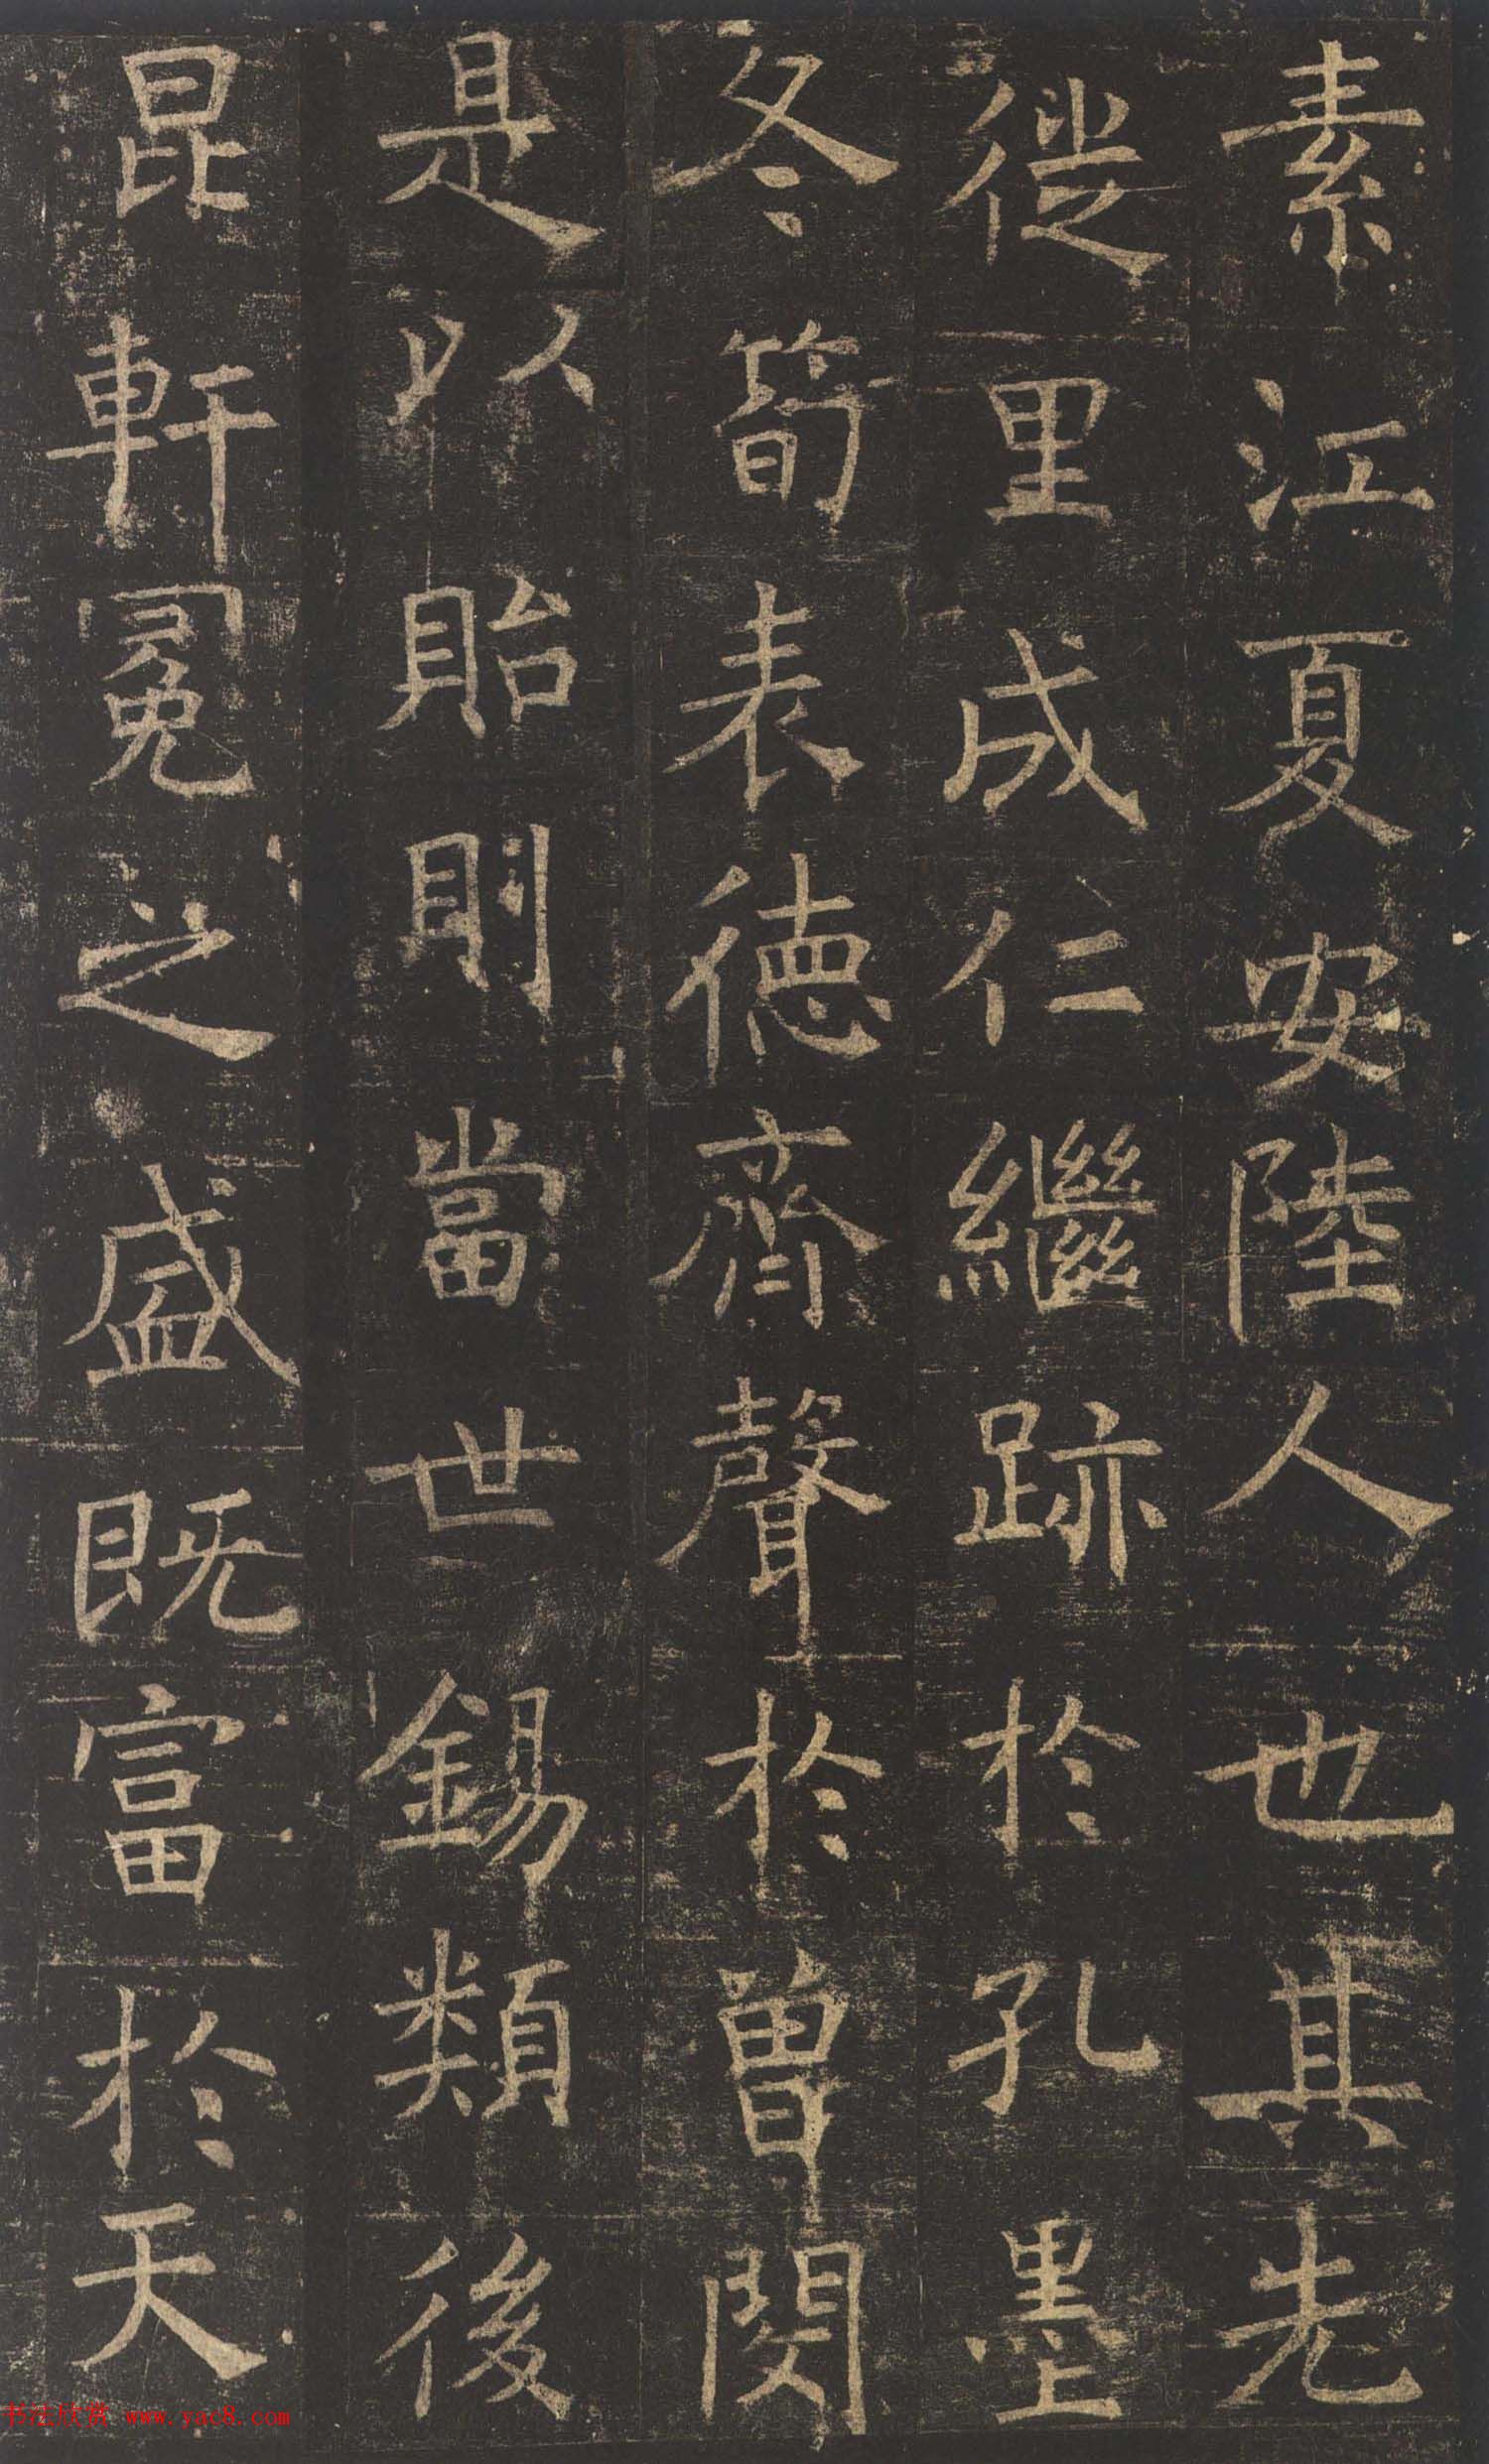 素江夏安陸人也其先
徙里成仁繼跡於孔墨
冬筍表德齊聲於曾閔
是以貽則當世錫類後
昆軒冕之盛既富於天
书法欣赏 www.yac8.com